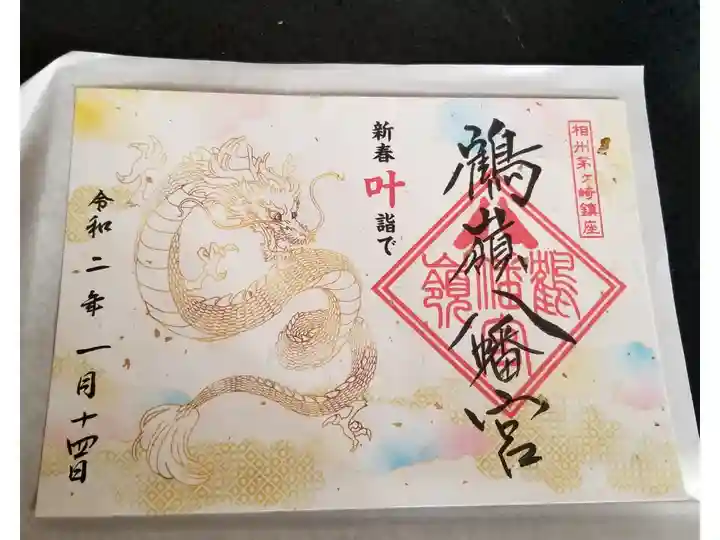 相州茅ヶ崎鎮座
鶴嶺八幡宮
鶴嶺八幡宮
新春叶詣で
令和二年一月十四日